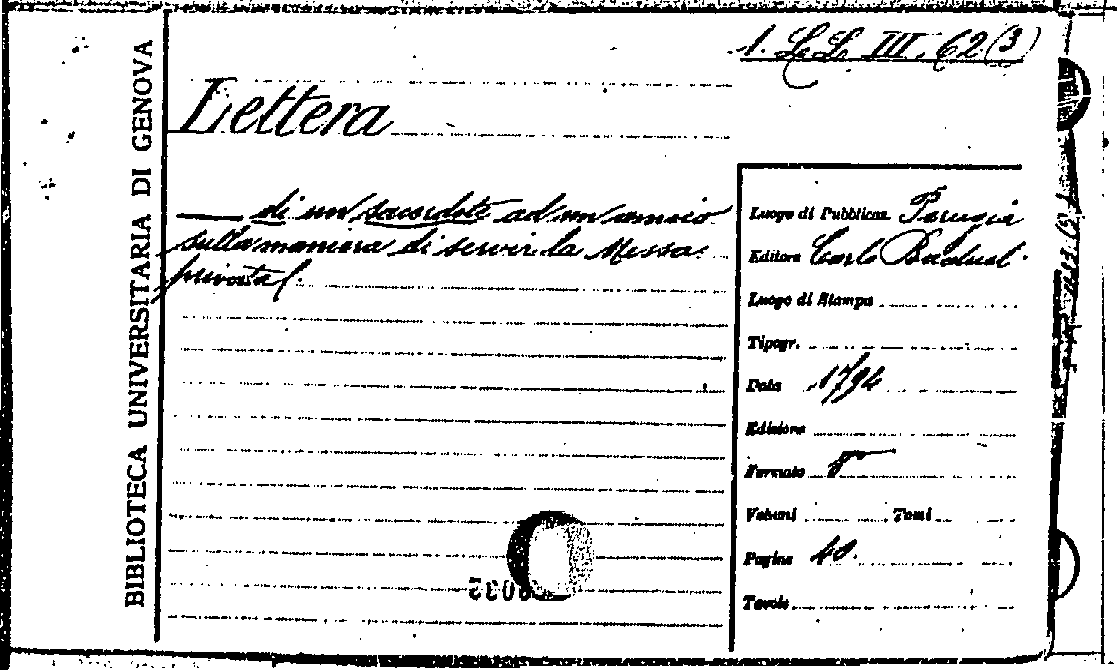 1. L.L. III. 62 (3)
Lettera
BIBLIOTECA UNIVERSITARIA DI GENOVA
di un sacerdote ad un amico
sulla maniera di servir la Messa
privata.
Luogo di Pubblicaz. Perugia
Editore Carlo Baduel.
Luogo di Stampa
Tipogr.
Data 1794
Edizione
Formato 8°
Volumi Tomi
Pagine 40.
Tavole